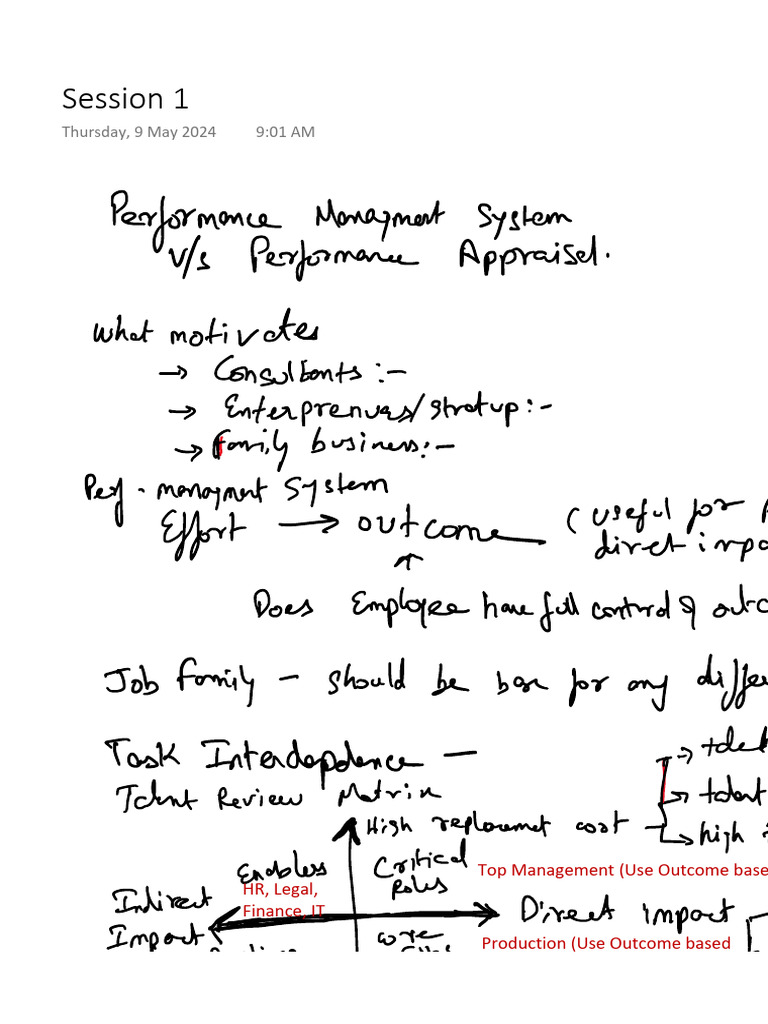 Session 1
Thursday, 9 May 2024 9:01 AM
Performance Managment System
v/s Performance Appraisel.
What motivates
→ Consultants :-
→ Enterprenuas/stratup:-
→ family business:-
Perf - managment System
Effort → outcome (useful for
direct impa
Does Employee have full control of outco
Job family - should be base for any differe
Task Interdependence -
Talent Review Matrix
→ talent
→ talent
High replacement cost → high
Enabless Critical
Roles
Top Management (Use Outcome base
HR, Legal,
Finance, IT
Indirect
Impact
Direct impact
core
Production (Use Outcome based